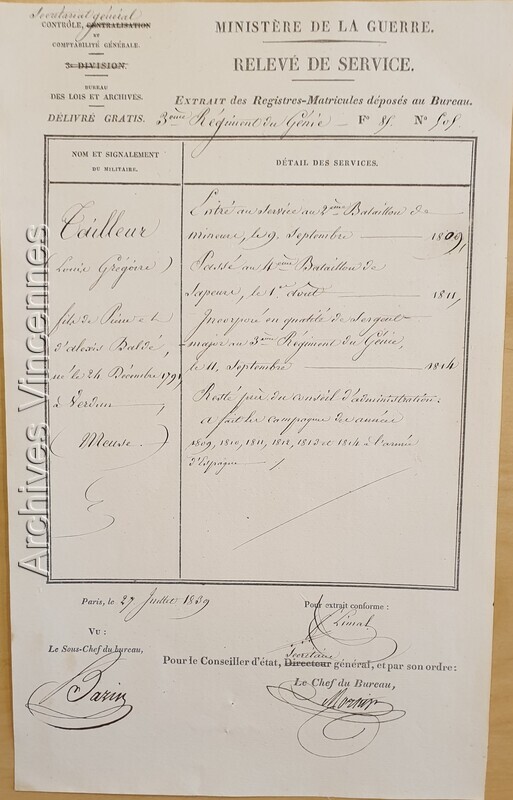 Secrétariat général
CONTRÔLE, CENTRALISATION
ET
COMPTABILITÉ GÉNÉRALE.
3e DIVISION.
BUREAU
DES LOIS ET ARCHIVES.
DÉLIVRÉ GRATIS.
MINISTÈRE DE LA GUERRE.
RELEVÉ DE SERVICE.
EXTRAIT des Registres-Matricules déposés au Bureau.
3ème Régiment du Génie Fo 85 No 505
NOM ET SIGNALEMENT
DU MILITAIRE.
Tailleur
(Louis Grégoire)
fils de et
d'Alexis Baldé,
né le 24 Décembre 1791
à Verdun
(Meuse)
DÉTAIL DES SERVICES.
Entré au Service au 2ème Bataillon de
mineurs, le 9 Septembre 1809,
Passé au 4ème Bataillon de
Sapeurs, le 1er Août 1811,
Incorporé en qualité de Sergent-
major au 3ème Régiment du Génie,
le 11, Septembre 1814
Resté près du conseil d'administration.
a fait les campagnes des années
1809, 1810, 1811, 1812, 1813 et 1814 à l'armée
d'Espagne
Paris, le 27 Juillet 1839
Pour extrait conforme :
VU :
Le Sous-Chef du bureau,
Bazin
Secrétaire
Pour le Conseiller d'état, Directeur général, et par son ordre :
Le Chef du Bureau,
Archives Vincennes